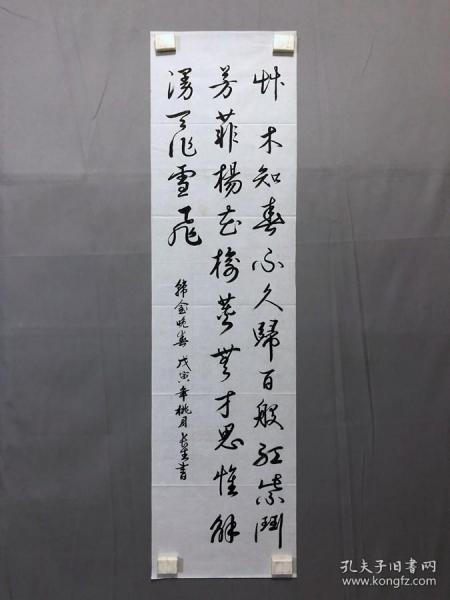 艸木知春不久歸百般紅紫鬥
芳菲楊花榆莢無才思惟解
漫天作雪飛
韓愈晚春 戊寅年桃月 書
孔夫子旧书网
www.kongfz.com